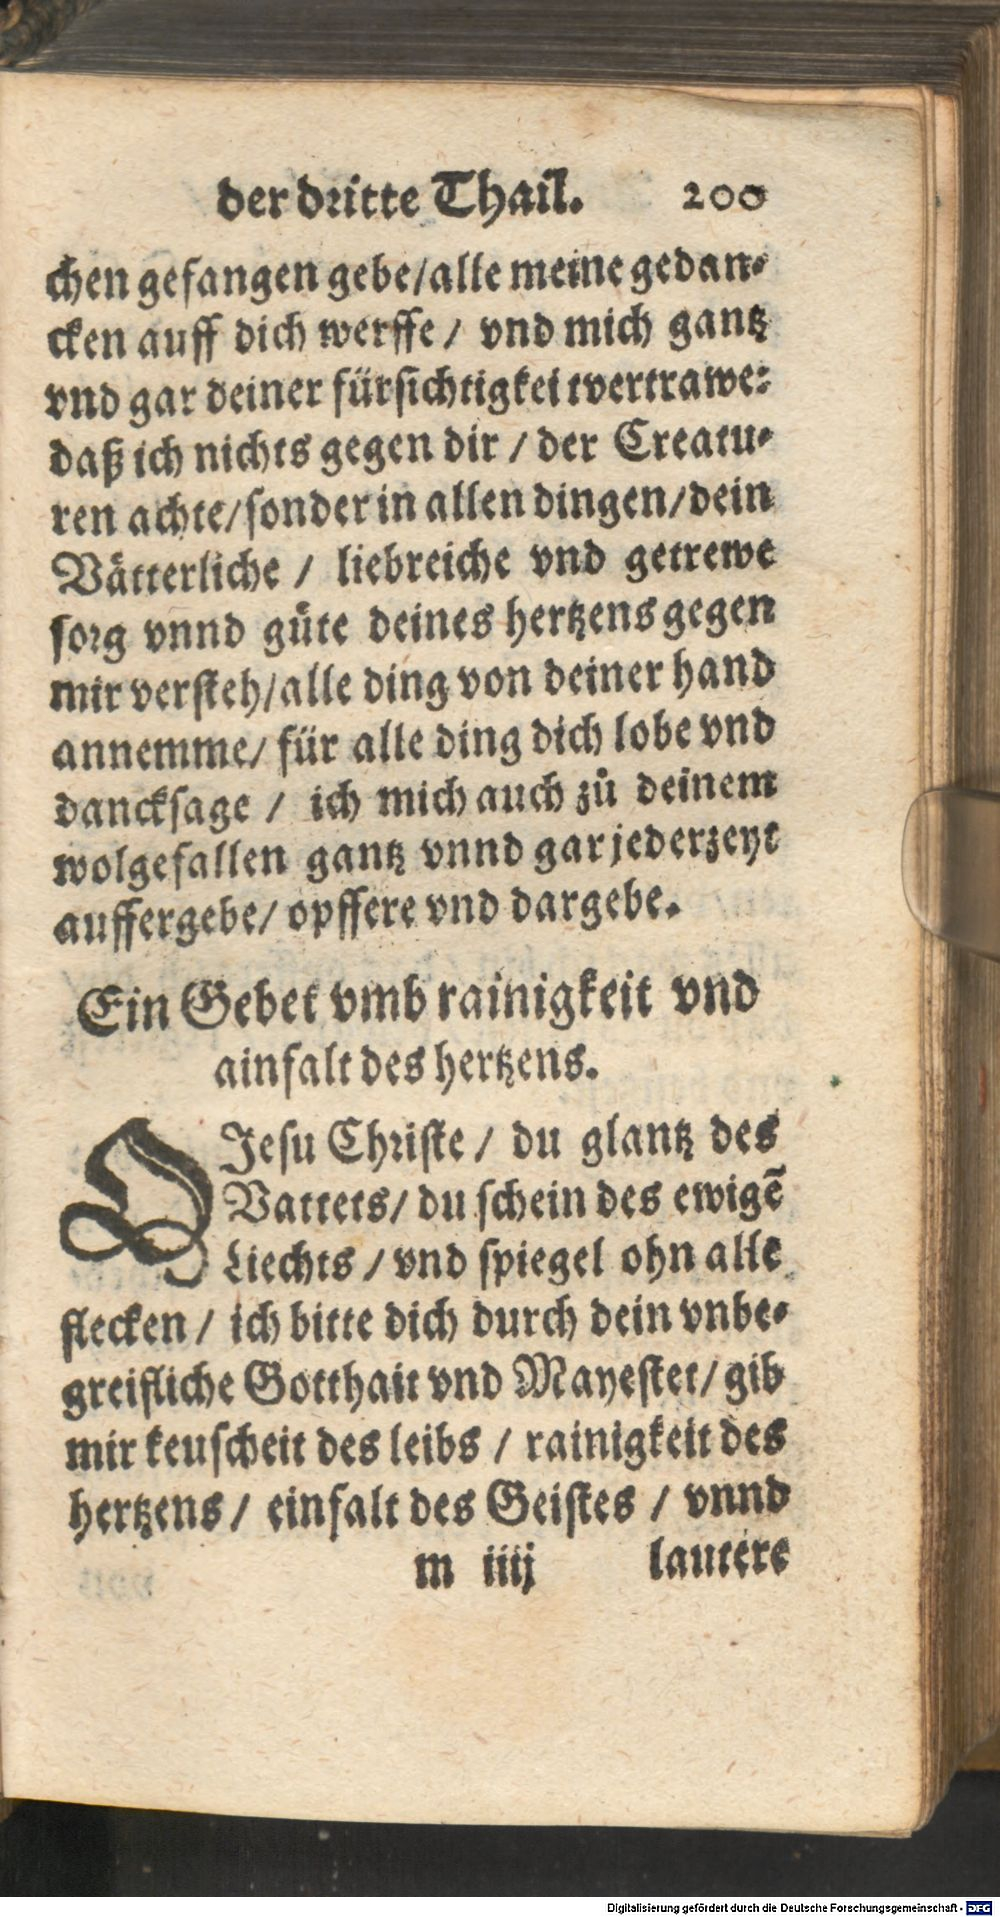 der dritte Thail. 200
chen gefangen gebe/alle meine gedan-
cken auff dich werffe / vnd mich gantz
vnd gar deiner fürsichtigkei tvertrawe:
daß ich nichts gegen dir / der Creatu-
ren achte/sonder in allen dingen/dein
Vätterliche / liebreiche vnd getrewe
sorg vnnd gůte deines hertzens gegen
mir versteh/alle ding von deiner hand
annemme/ für alle ding dich lobe vnd
dancksage / ich mich auch zů deinem
wolgefallen gantz vnnd gar jederzeyt
auffergebe/ opffere vnd dargebe.
Ein Gebet vmb rainigkeit vnd
ainfalt des hertzens.
O Jesu Christe / du glantz des
Vatters/ du schein des ewigẽ
Liechts / vnd spiegel ohn alle
flecken / ich bitte dich durch dein vnbe-
greifliche Gotthait vnd Mayestet/ gib
mir keuscheit des leibs / rainigkeit des
hertzens / einfalt des Geistes / vnnd
m iiij lautere
Digitalisierung gefördert durch die Deutsche Forschungsgemeinschaft - DFG